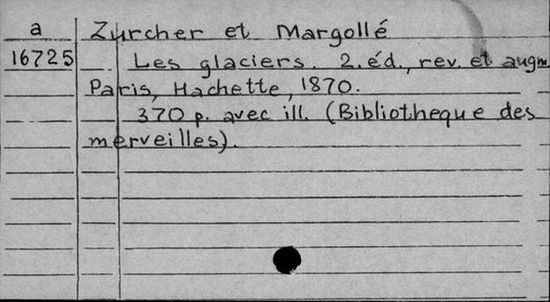 a Zurcher et Margollé
16725 Les glaciers. 2. éd., rev. et augm
Paris, Hachette, 1870.
370 p. avec ill. (Bibliotheque des
merveilles).